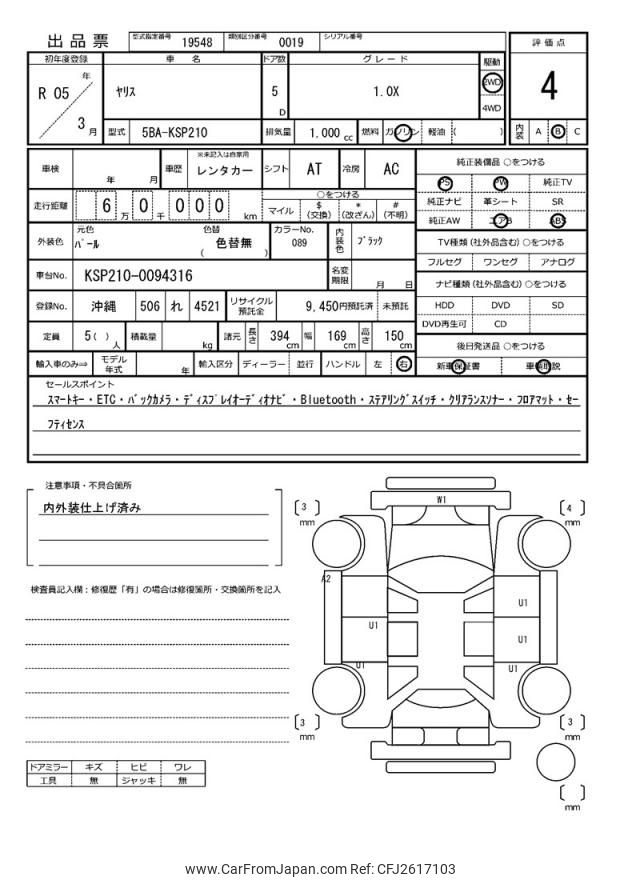 出品票
型式指定番号 19548 類別区分番号 0019 シリアル番号
評価点
4
内装 A B C
初年度登録 車名 ドア数 グレード 駆動
年
R 05 ヤリス 5 D 1.0X 2WD
4WD
3 月
型式 5BA-KSP210 排気量 1.000 cc 燃料 ガソリン 軽油 ( )
車検 年 月 車歴 ※未記入は自家用 レンタカー シフト AT 冷房 AC
走行距離 6 万 0 千 0 0 0 km
○をつける
マイル $ (交換) * (改ざん) # (不明)
外装色 元色 パール 色替 色替無 ( ) カラーNo. 089 内装色 ブラック
車台No. KSP210-0094316 名変期限 月 日
登録No. 沖縄 506 れ 4521 リサイクル預託金 9,450円預託済 未預託
定員 5( )人 積載量 kg 諸元 長さ 394 cm 幅 169 cm 高さ 150 cm
輸入車のみ⇒ モデル年式 年 輸入区分 ディーラー 並行 ハンドル 左 右
純正装備品 ○をつける
PS PW 純正TV
純正ナビ 革シート SR
純正AW エアB ABS
TV種類(社外品含む)○をつける
フルセグ ワンセグ アナログ
ナビ種類(社外品含む)○をつける
HDD DVD SD
DVD再生可 CD
後日発送品 ○をつける
新車保証書 車輌取説
セールスポイント
スマートキー・ETC・バックカメラ・ディスプレイオーディオナビ・Bluetooth・ステアリングスイッチ・クリアランスソナー・フロアマット・セー
フティセンス
注意事項・不具合箇所
内外装仕上げ済み
検査員記入欄：修復歴「有」の場合は修復箇所・交換箇所を記入
ドアミラー キズ ヒビ ワレ
工具 無 ジャッキ 無
W1
[3] mm
[4] mm
A2
U1
U1
U1
U1
U1
[3] mm
[3] mm
[ ] mm
www.CarFromJapan.com Ref: CFJ2617103